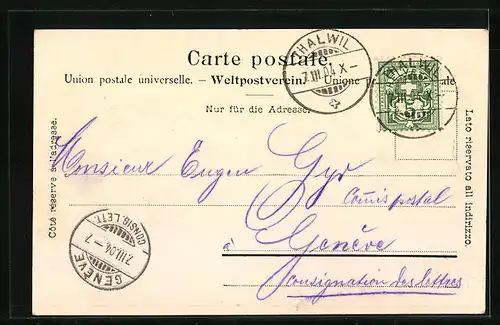 Carte postale.
Union postale universelle. — Weltpostverein. — Unione
Nur für die Adresse.
THALWIL
7.III.04.X–
THALWIL
Côté réservé à l'adresse.
Lato riservato all indirizzo.
Monsieur Eugen Gyr
Comis postal
à Genève
Consignation des lettres
GENÈVE
7.III.04–7
CONSIG. LETT.